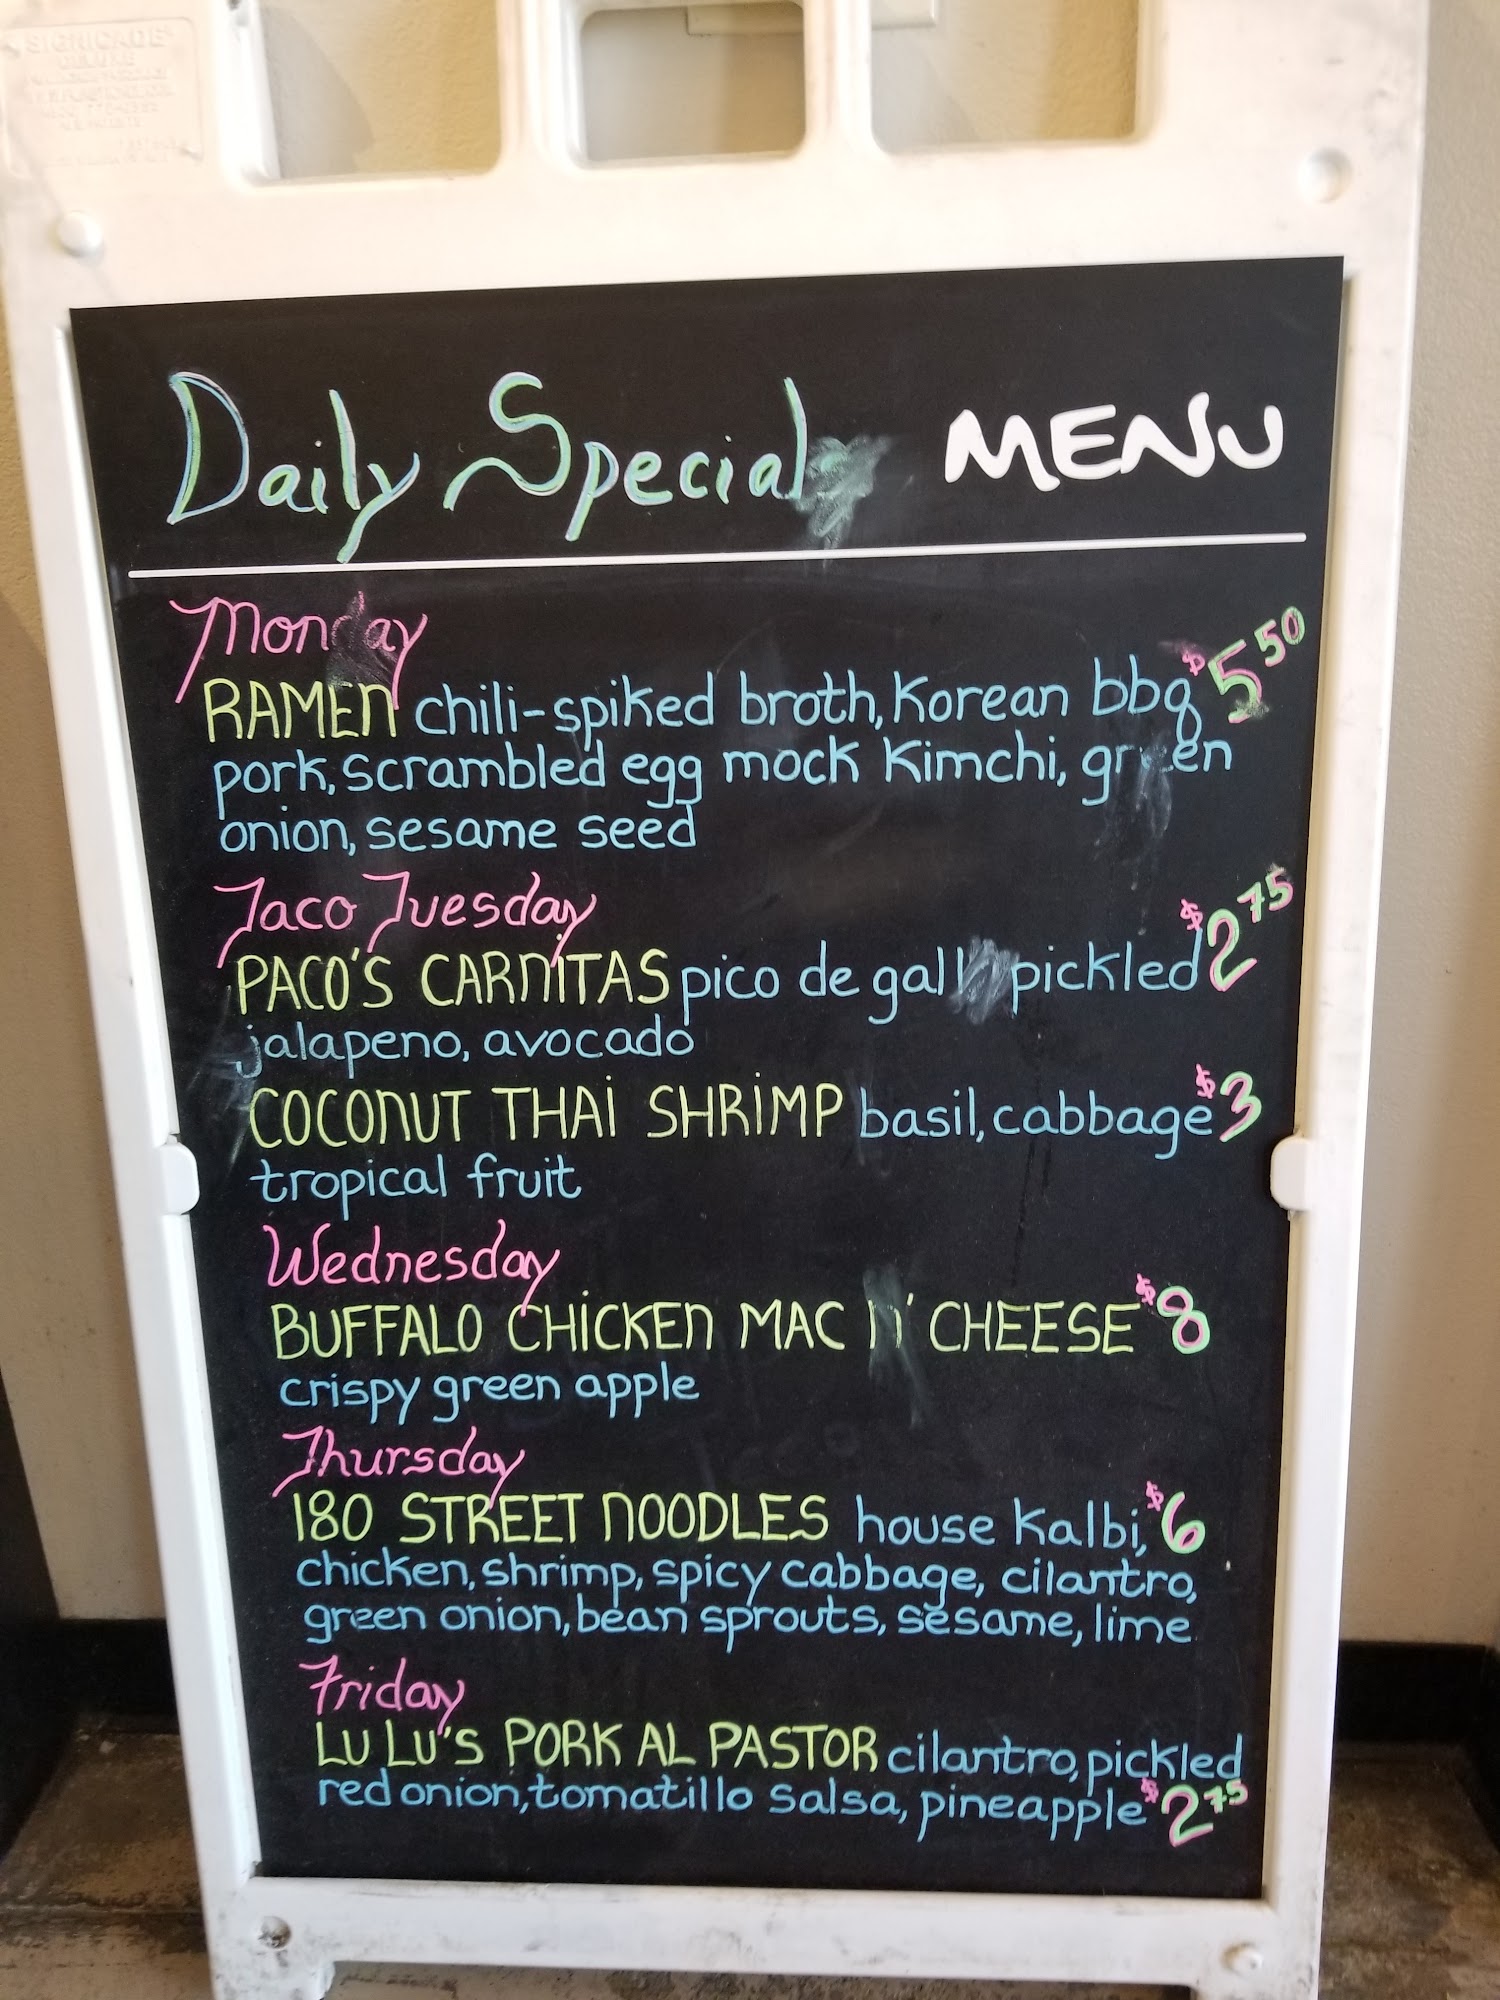 SIGNICADE
DELUXE
Daily Special MENU
Monday
RAMEN chili-spiked broth, Korean bbq $5 50
pork, scrambled egg mock kimchi, green
onion, sesame seed
Taco Tuesday
PACO'S CARNITAS pico de gall pickled $2 75
jalapeno, avocado
COCONUT THAI SHRIMP basil, cabbage $3
tropical fruit
Wednesday
BUFFALO CHICKEN MAC N' CHEESE $8
crispy green apple
Thursday
180 STREET NOODLES house Kalbi, $6
chicken, shrimp, spicy cabbage, cilantro,
green onion, bean sprouts, sesame, lime
Friday
LU LU'S PORK AL PASTOR cilantro, pickled
red onion, tomatillo salsa, pineapple $2 75